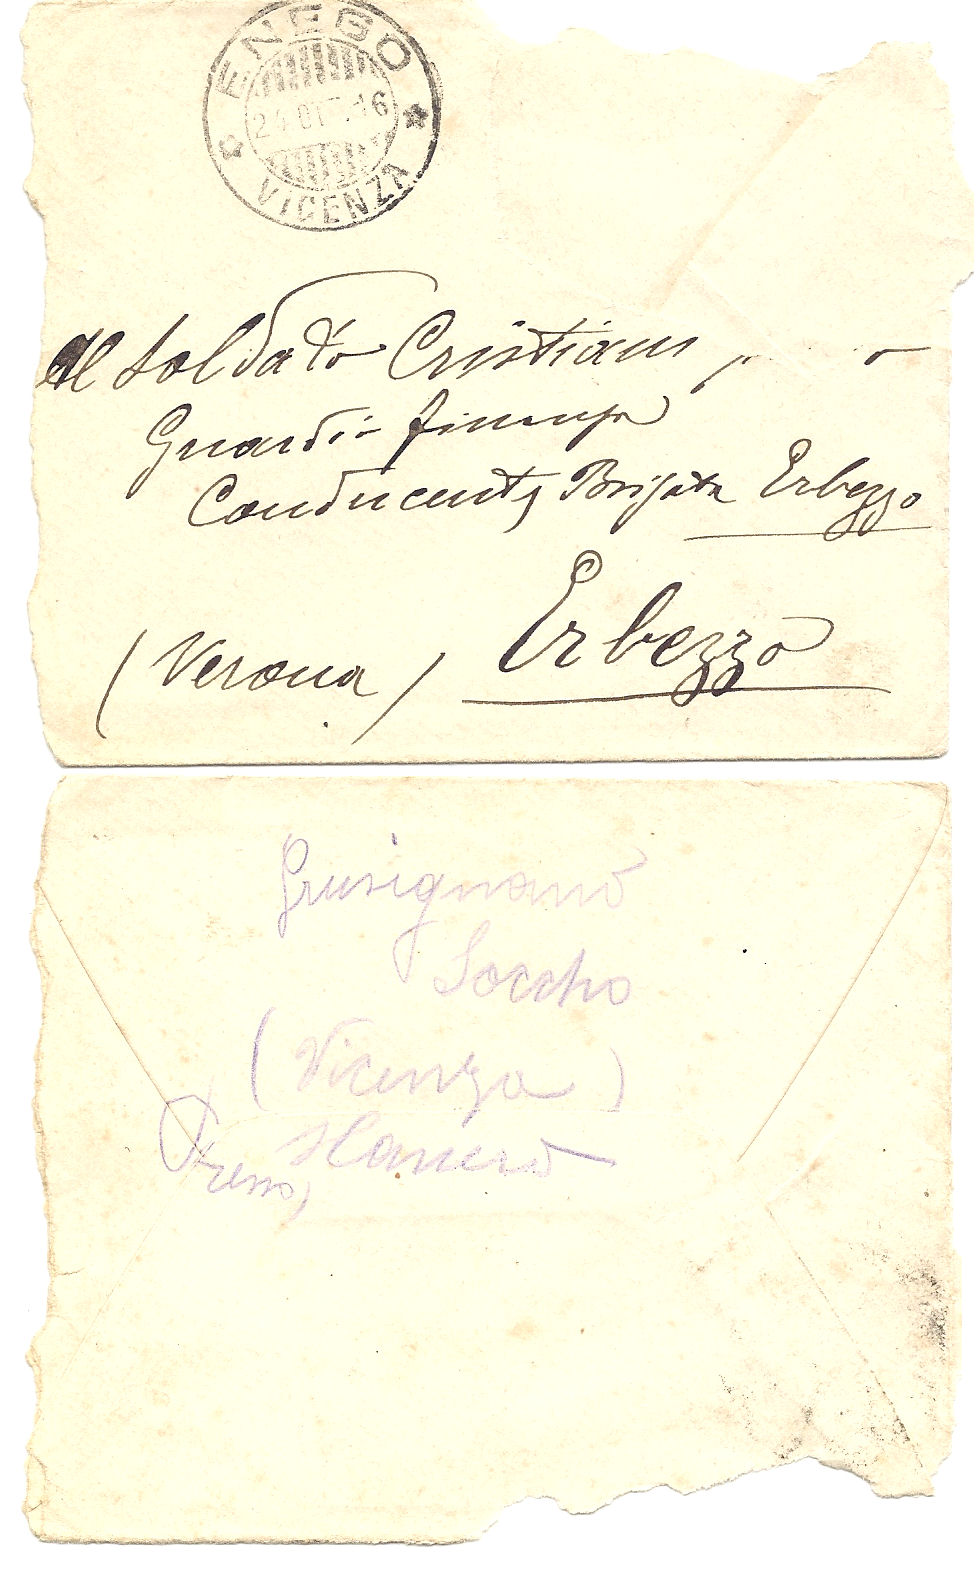 ENEGO
16
VICENZA
Al Soldato Cristiani
Guardia finanza
Conducente Brigata Erbezzo
Erbezzo
(Verona)
Grusignano
Soccho
(Vicenza)
Presso,